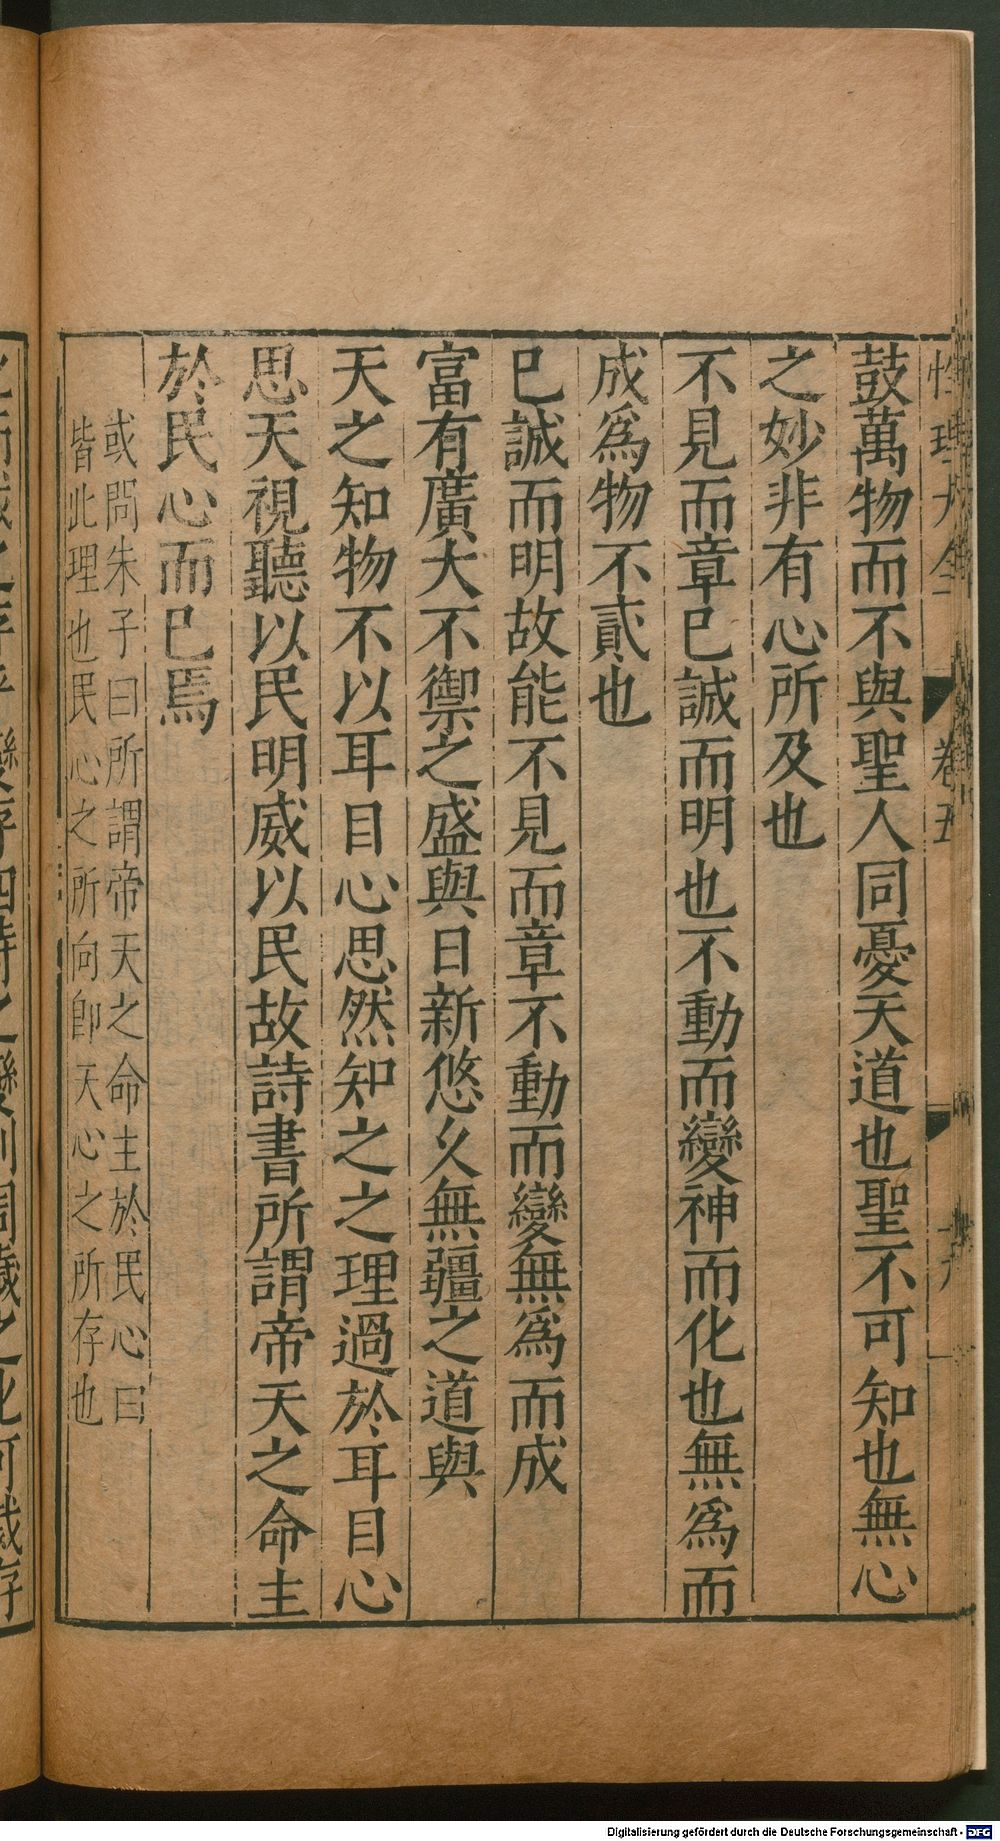 性理大全 卷五
鼓萬物而不與聖人同憂天道也聖不可知也無心
之妙非有心所及也
不見而章已誠而明也不動而變神而化也無為而
成為物不貳也
已誠而明故能不見而章不動而變無為而成
富有廣大不禦之盛與日新悠久無疆之道與
天之知物不以耳目心思然知之之理過於耳目心
思天視聽以民明威以民故詩書所謂帝天之命主
於民心而已焉
或問朱子曰所謂帝天之命主於民心曰
皆此理也民心之所向卽天心之所存也
Digitalisierung gefördert durch die Deutsche Forschungsgemeinschaft - DFG